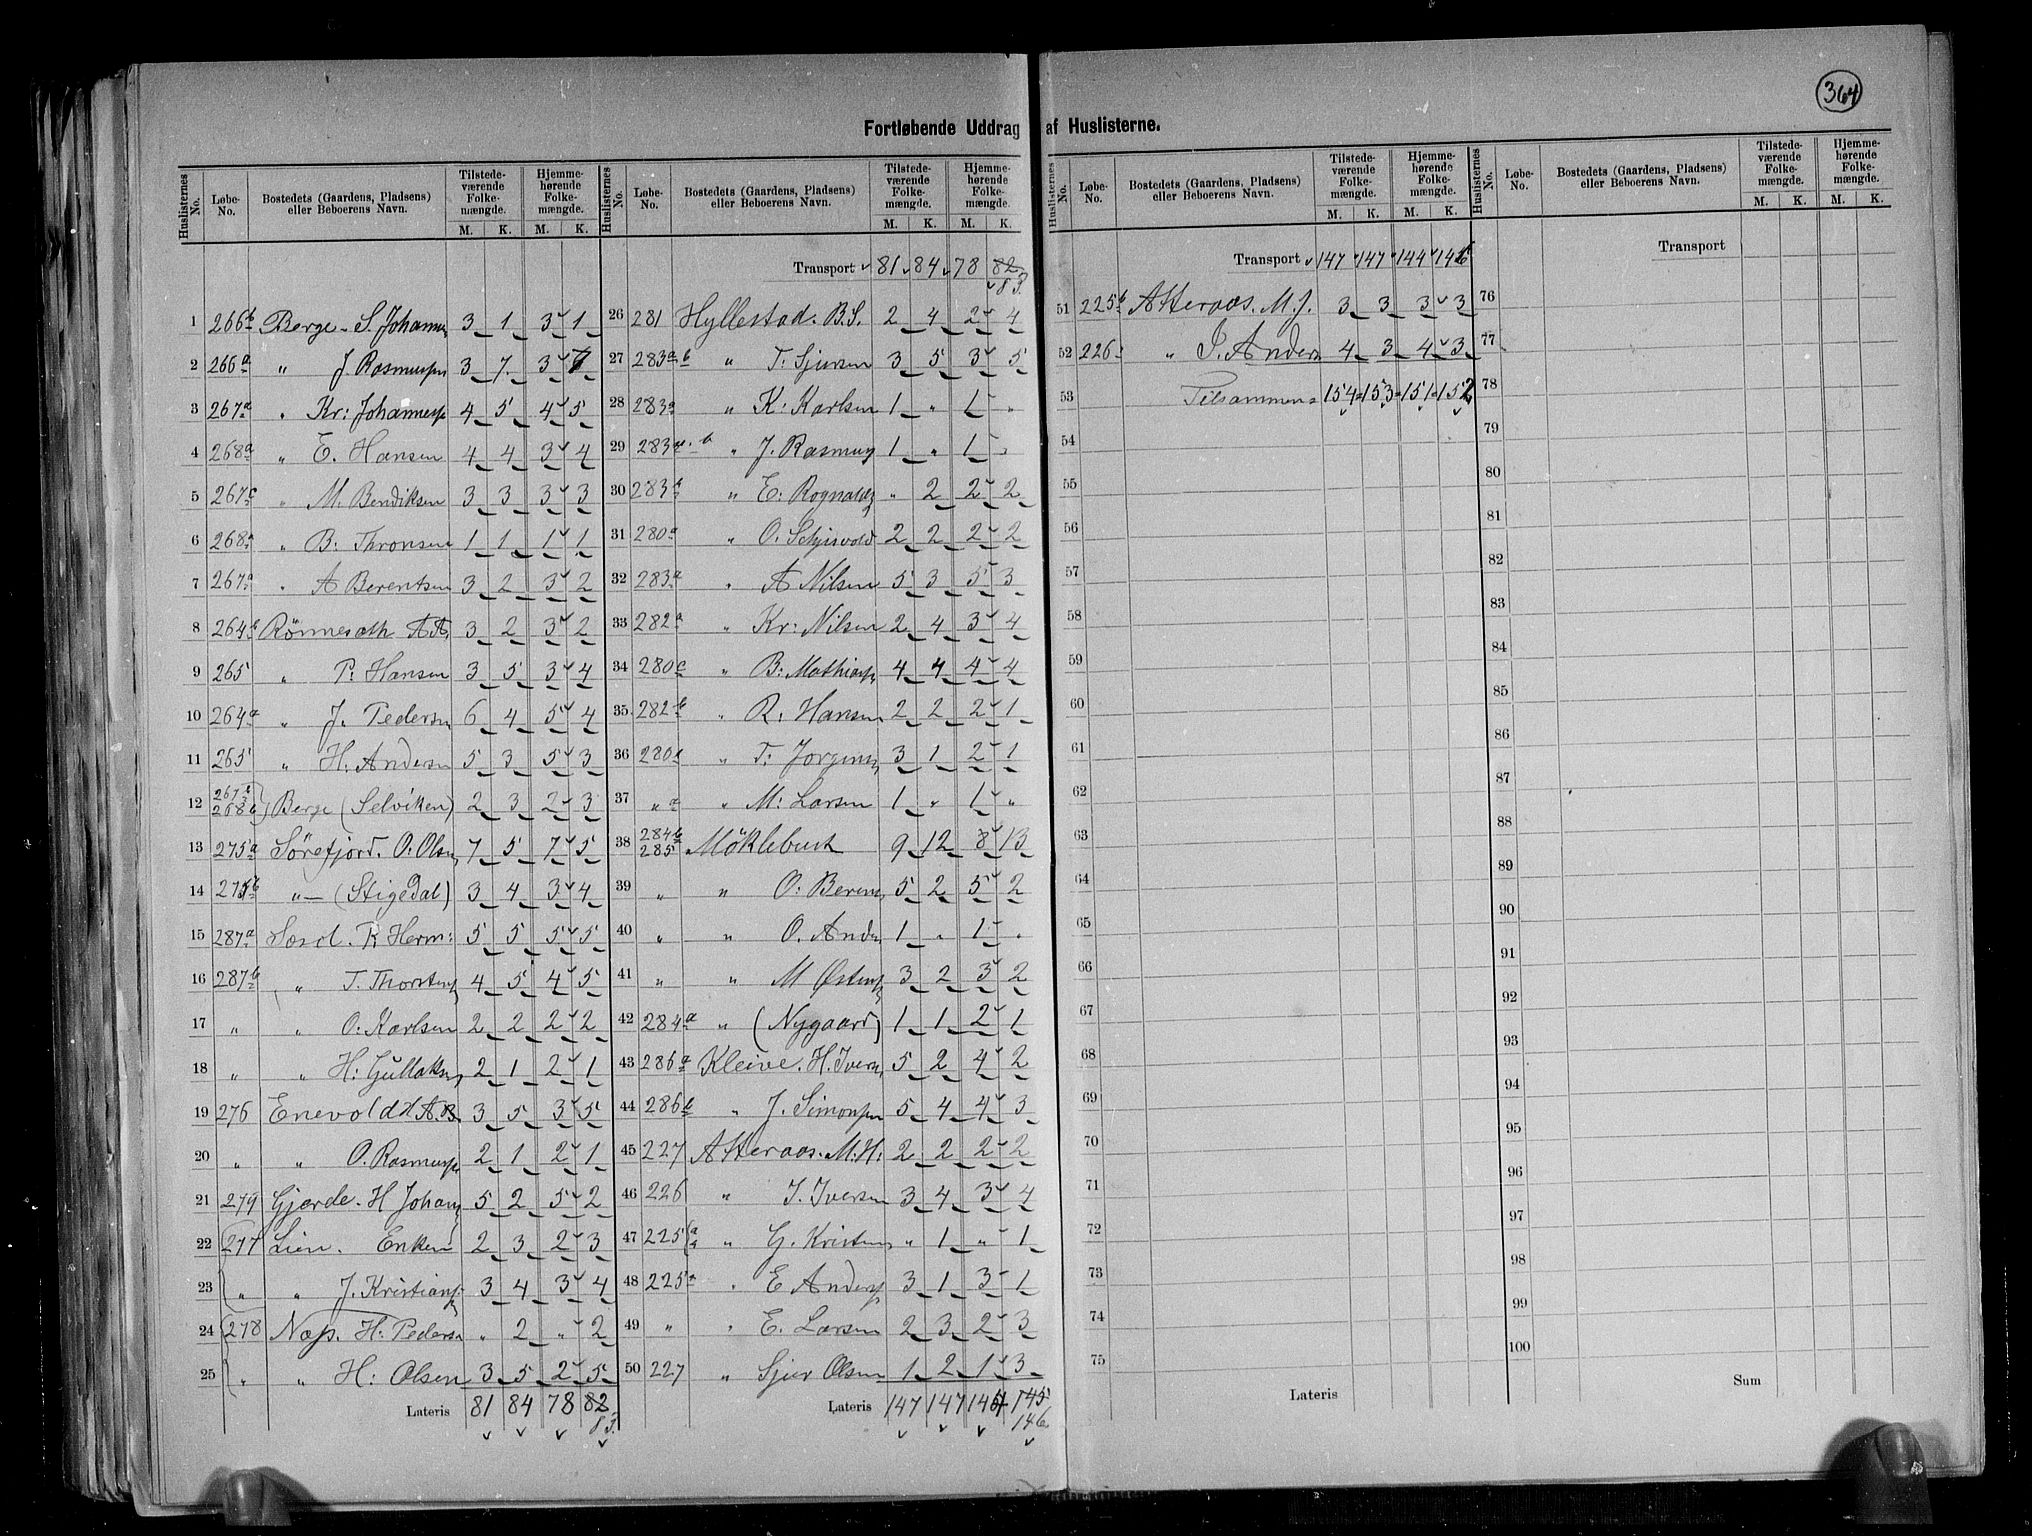 364
Fortløbende Uddrag af Huslisterne.
Huslisternes No. Løbe-No. Bostedets (Gaardens, Pladsens) eller Beboerens Navn. Tilstedeværende Folkemængde. M. K. Hjemmehørende Folkemængde. M. K.
1 266b Berge - S. Johanne 3 1 3 1
2 266a " J. Rasmussen 3 7 3 7
3 267a " Kr: Johanness 4 5 4 5
4 268a " E. Hansen 4 4 3 4
5 267c " M. Bendiksen 3 3 3 3
6 268a " B: Thronsen 1 1 1 1
7 267a " A Berentsen 3 2 3 2
8 264b Rönneseth A A 3 2 3 2
9 265 " P. Hansen 3 5 3 4
10 264a " J. Pedersen 6 4 5 4
11 265 " H. Andersn 5 3 5 3
12 267b 268b Berge (Selviken) 2 3 2 3
13 275a Sörefjord. O. Olsen 7 5 7 5
14 275b "— (Stigedal) 3 4 3 4
15 287a Sæsol. R Herm: 5 5 5 5
16 287b " T. Thorstens 4 5 4 5
17 " " O. Karlsen 2 2 2 2
18 " " H: Gullaksen 2 1 2 1
19 276 Enevold A. B 3 5 3 5
20 " " O. Rasmuss 2 1 2 1
21 279 Gjærde - H Johan 5 2 5 2
22 277 Lien. Enken 2 3 2 3
23 " " J. Kristians 3 4 3 4
24 278 Næs. H: Pedersn " 2 " 2
25 " " H: Olsen 3 5 2 5
Lateris 81 84 78 82 83
Huslisternes No. Løbe-No. Bostedets (Gaardens, Pladsens) eller Beboerens Navn. Tilstedeværende Folkemængde. M. K. Hjemmehørende Folkemængde. M. K.
Transport 81 84 78 82 83
26 281 Hyllestad. B.S. 2 4 2 4
27 283a b " T. Sjursen 3 5 3 5
28 283a " K: Karlsen 1 " 1 "
29 283a b " J. Rasmus 1 " 1 "
30 283b " E: Rognalds " 2 2 2
31 280a " O. 2 2 2 2
32 283a " A Nilsen 5 3 5 3
33 282a " Kr: Nilsen 2 4 3 4
34 280c " B: Mathias 4 4 4 4
35 282b " R: Hansen 2 2 2 1
36 280a " T. Jorgens 3 1 2 1
37 " a " M: Larsen 1 " 1 "
38 284b 285 Möklebust 9 12 8 13
39 " " O: Berens 5 2 5 2
40 " " O. Ander 1 " 1 "
41 " " M Østens 3 2 3 2
42 284a " (Nygaard) 1 1 2 1
43 286a Kleive. H. Ivers 5 2 4 2
44 286b " J. Simonsen 5 4 4 3
45 227 Atteraas. M. H: 2 2 2 2
46 226 " I. Iversen 3 4 3 4
47 225a " G. Kristens " 1 " 1
48 225a " E Anders 3 1 3 1
49 " " E. Larsen 2 3 2 3
50 227 " Sjur Olsen 1 2 1 3
Lateris 147 147 144 145 146
Huslisternes No. Løbe-No. Bostedets (Gaardens, Pladsens) eller Beboerens Navn. Tilstedeværende Folkemængde. M. K. Hjemmehørende Folkemængde. M. K.
Transport 147 147 144 146
51 225b Atteraas. M. J. 3 3 3 3
52 226 " I. Anders 4 3 4 3
53 Tilsammen = 154 = 153 = 151 = 152
54
55
56
57
58
59
60
61
62
63
64
65
66
67
68
69
70
71
72
73
74
75
Lateris
Huslisternes No. Løbe-No. Bostedets (Gaardens, Pladsens) eller Beboerens Navn. Tilstedeværende Folkemængde. M. K. Hjemmehørende Folkemængde. M. K.
Transport
76
77
78
79
80
81
82
83
84
85
86
87
88
89
90
91
92
93
94
95
96
97
98
99
100
Sum